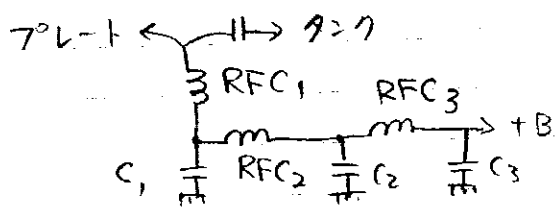 プレート タンク
RFC₁
RFC₃
+B
C₁ RFC₂ C₂ C₃